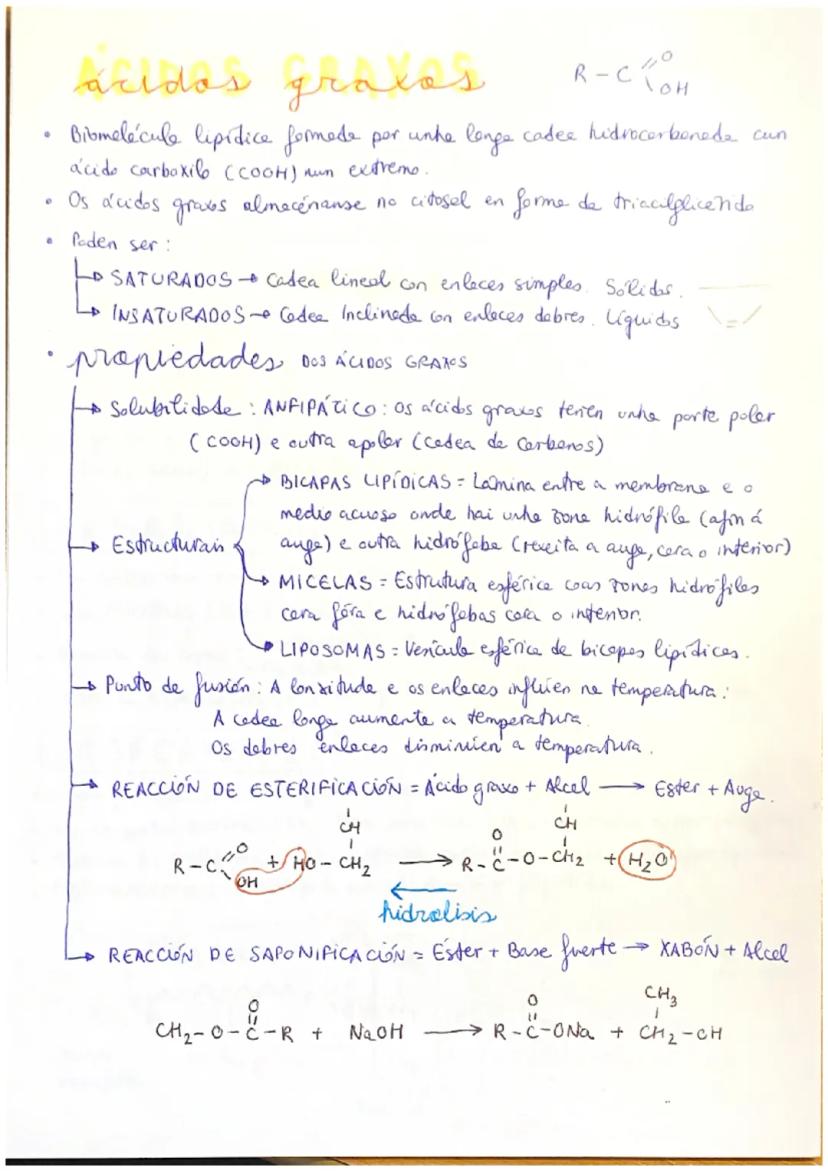 ácidos graxos
R-C=O OH
• Biomolécula lipídica formada por unha longa cadea hidrocarbonada cun
ácido carboxilo (COOH) nun extremo.
• Os ácidos graxos almacénanse no citosol en forma de triacilglicérido
• Poden ser:
→ SATURADOS → Cadea lineal con enlaces simples. Sólidos.
→ INSATURADOS → Cadea Inclinada con enlaces dobres. Líquidos
• propiedades DOS ÁCIDOS GRAXOS
→ Solubilidade: ANFIPÁTICO: os ácidos graxos teñen unha parte polar
(COOH) e outra apolar (cadea de carbonos)
→ Estructurais
→ BICAPAS LIPÍDICAS = Lámina entre a membrana e o
medio acuoso onde hai unha zona hidrófila (afín á
auga) e outra hidrófoba (rexeita a auga, cara o interior)
→ MICELAS = Estrutura esférica coas zonas hidrófilas
cara fóra e hidrófobas cara o interior.
→ LIPOSOMAS = Vesícula esférica de bicapas lipídicas.
→ Punto de fusión: A lonxitude e os enlaces inflúen na temperatura:
A cadea longa aumenta a temperatura.
Os dobres enlaces disminúen a temperatura.
→ REACCIÓN DE ESTERIFICACIÓN = Ácido graxo + Alcol → Ester + Auga.
CH CH
O O
R-C OH + HO-CH₂ → R-C-O-CH₂ + H₂O
←
hidrolisis
→ REACCIÓN DE SAPONIFICACIÓN = Ester + Base fuerte → XABÓN + Alcol
O O CH₃
CH₂-O-C-R + NaOH → R-C-ONa + CH₂-OH